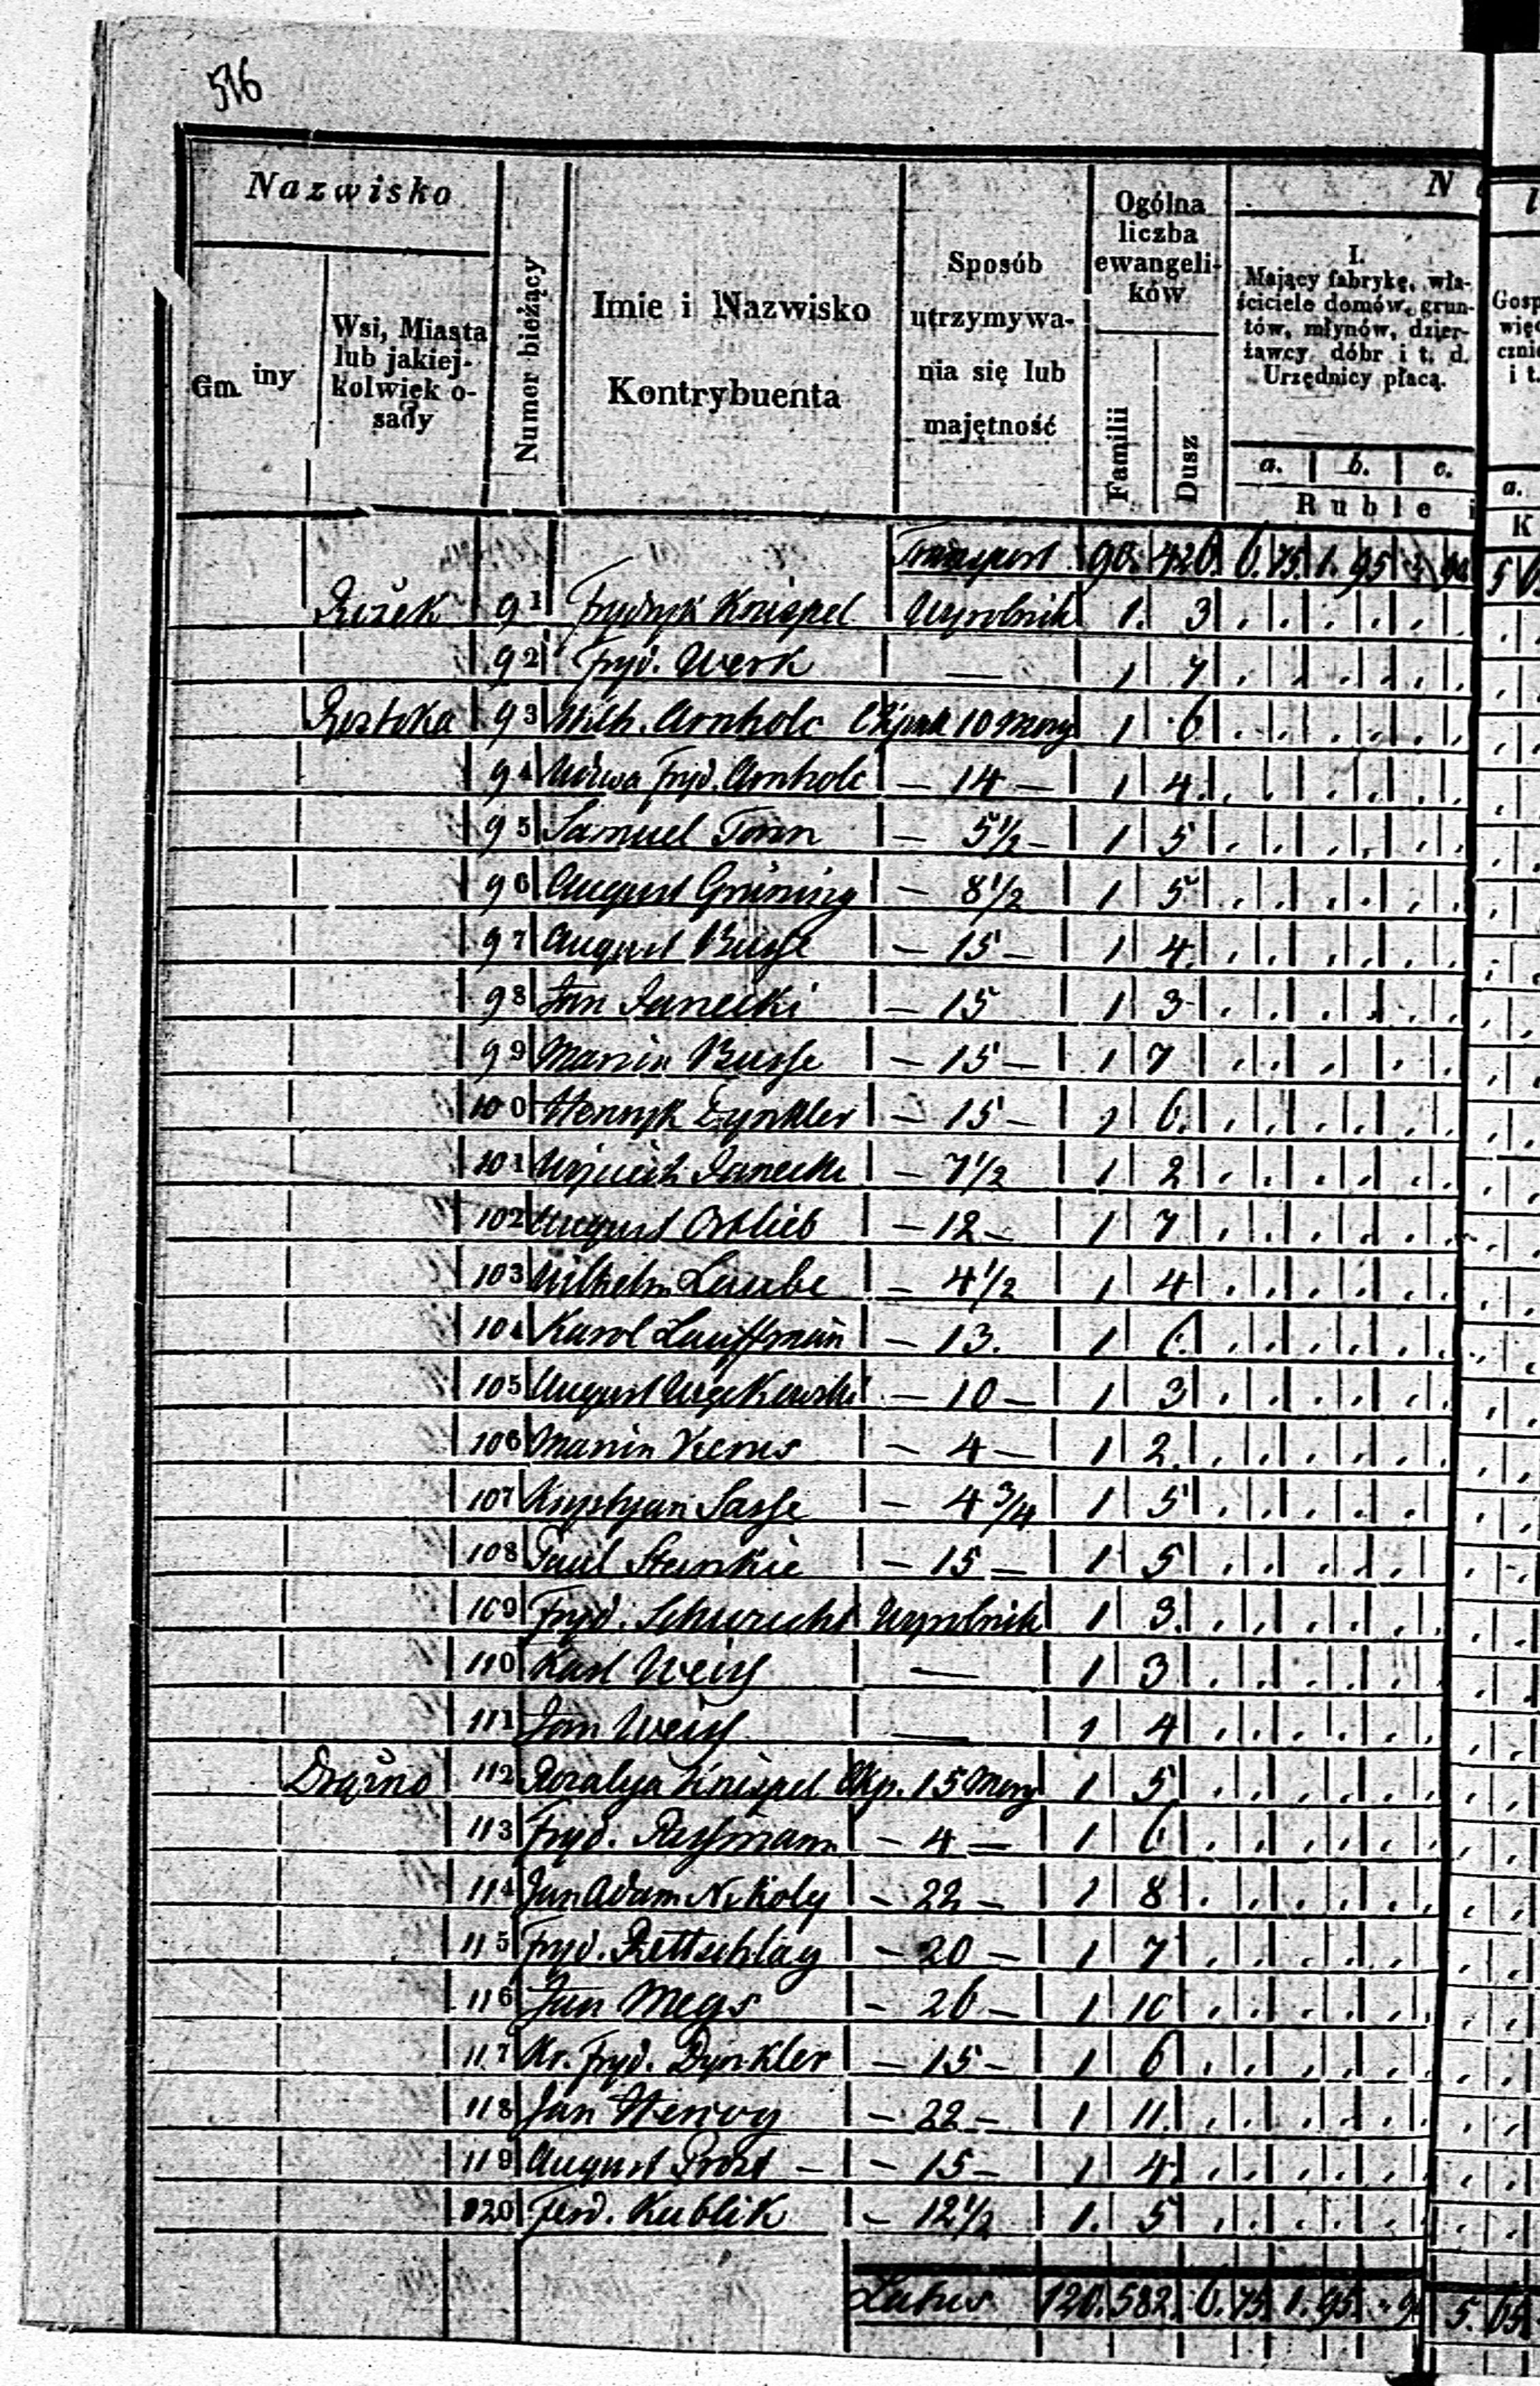 516
Nazwisko
Gminy
Wsi, Miasta lub jakiejkolwiek osady
Numer bieżący
Imie i Nazwisko Kontrybuenta
Sposób utrzymywania się lub majętność
Ogólna liczba ewangelików
Familii
Dusz
N
I.
Mający fabrykę, właściciele domów, gruntów, młynów, dzierżawcy dóbr i t. d. Urzędnicy płacą.
a. b. c.
Ruble i
Transport 90. 426. 6. 75. 1. 95
91 Frydryk Knispel Wyrobnik 1. 3
92 Fryd. Werk — 1 7
Roztoka 93 Wilh. Arnholc 10 Morg 1 6
94 Wdowa Fryd. Arnholc — 14 — 1 4
95 Samuel Tonn — 5½ — 1 5
96 August Grüning — 8½ 1 5
97 August Busse — 15 — 1 4.
98 Jan Janecki — 15 1 3
99 Marcin Busse — 15 — 1 7
100 Henryk Dynkler — 15 — 1 6.
101 Wojciech Janecki — 7½ 1 2
102 August Ortlieb — 12 — 1 7
103 Wilhelm Laube — 4½ 1 4
104 Karol Lauffman — 13. 1 6.
105 August — 10 — 1 3
106 Marcin — 4 — 1 2.
107 Krystyan Sasse — 4¾ 1 5
108 Paul Steinkie — 15 — 1 5
109 Fryd. Schurecht Wyrobnik 1 3.
110 Karl Weiss — 1 3
111 Jan Weiss — 1 4
Drążno 112 Rozalija Knispel Okp. 15 Morg 1 5
113 Fryd. Rassmann — 4 — 1 6
114 Jan Adam Nikoly — 22 — 1 8
115 Fryd. Rettschlag — 20 — 1 7
116 Jan Megs — 26 — 1 10
117 Kr. Fryd. Dynkler — 15 — 1 6
118 Jan Hercog — 22 — 1 11.
119 August Prost — — 15 — 1 4
120 Ferd. Kublik — 12½ 1. 5
Latus 120. 582. 6. 75. 1. 95